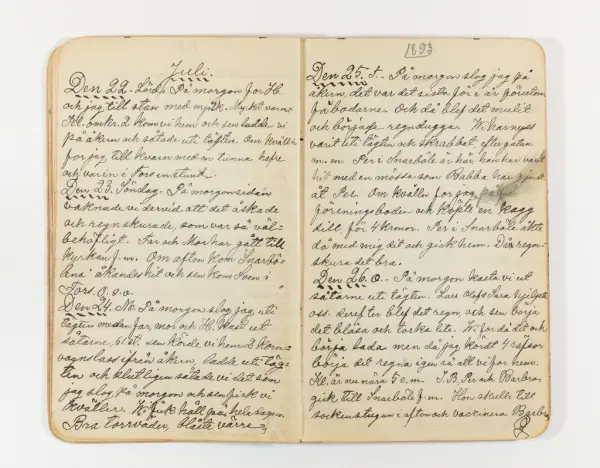 Juli.
Den 22. Lörd. På morgon for Hb
och jag till stan med mjölk. Mycket varmt
Kl. omkr. 2 kom vi hem och sen ladde vi
på åkern och såtade uti täften. Om kvällen
for jag till kvarn med en tunna hafre
och var in i Fors en stund.
Den 23. Söndag. På morgonsidan
vaknade vi derveid att det åskade
och regnskurade, som var så väl-
behöfligt. Far och Mor har gått till
kyrkan f.m. Om afton kom Snarbö-
åkandes hit och sen kom Sven i
Fors. o.s.v.
Den 24. M. På morgon slog jag uti
tägten medan far, mor och H. kast ut
såtarne, bl. sen körde vi hem 2 korn-
vagnslass ifrån åkern, ladde uti täg-
ten och slutligen såtade vi det som
jag slog på morgon och sen fick vi
kvällsv. Vi fick håll på i hela dagen.
Bra torrväder, blåste värre
1893
Den 25. T. - På morgon slog jag på
åkern det var det sista för i år förutom
fäbodarne. Och då blef det mulit
och började regndugga. Vi har nyss
varit uti tägten och skrabbat efter gatan
m.m. Per i Snarböle är här han har varit
hit med en mössa som Babba har gjendt
åt Per. Om kvällen for jag
föreningsboden och köpte en kagg
sill för 4 kronor. Per i Snarböle åkte
då med mig dit och gick hem. Då regn-
skura det bra.
Den 26. O. - På morgon kasta vi ut
såtarne uti tägten. Lars Olofs Sara hjelpte
oss. derefter blef det regn, och sen börja
det blåsa och torka lite. Vi for då dit och
börja ladda men då jag kördt 4 räfsor
börja det regna igen så att vi for hem.
Kl. är nu nära 5 e.m. S.B. Per och Barbro
gick till Snarböle f.m. Hon skulle till
sockenstugan i afton och vaccinera Barbro